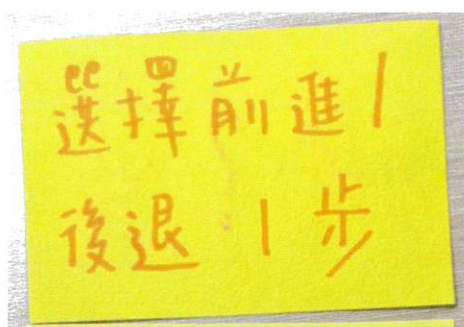 選擇前進1
後退1步